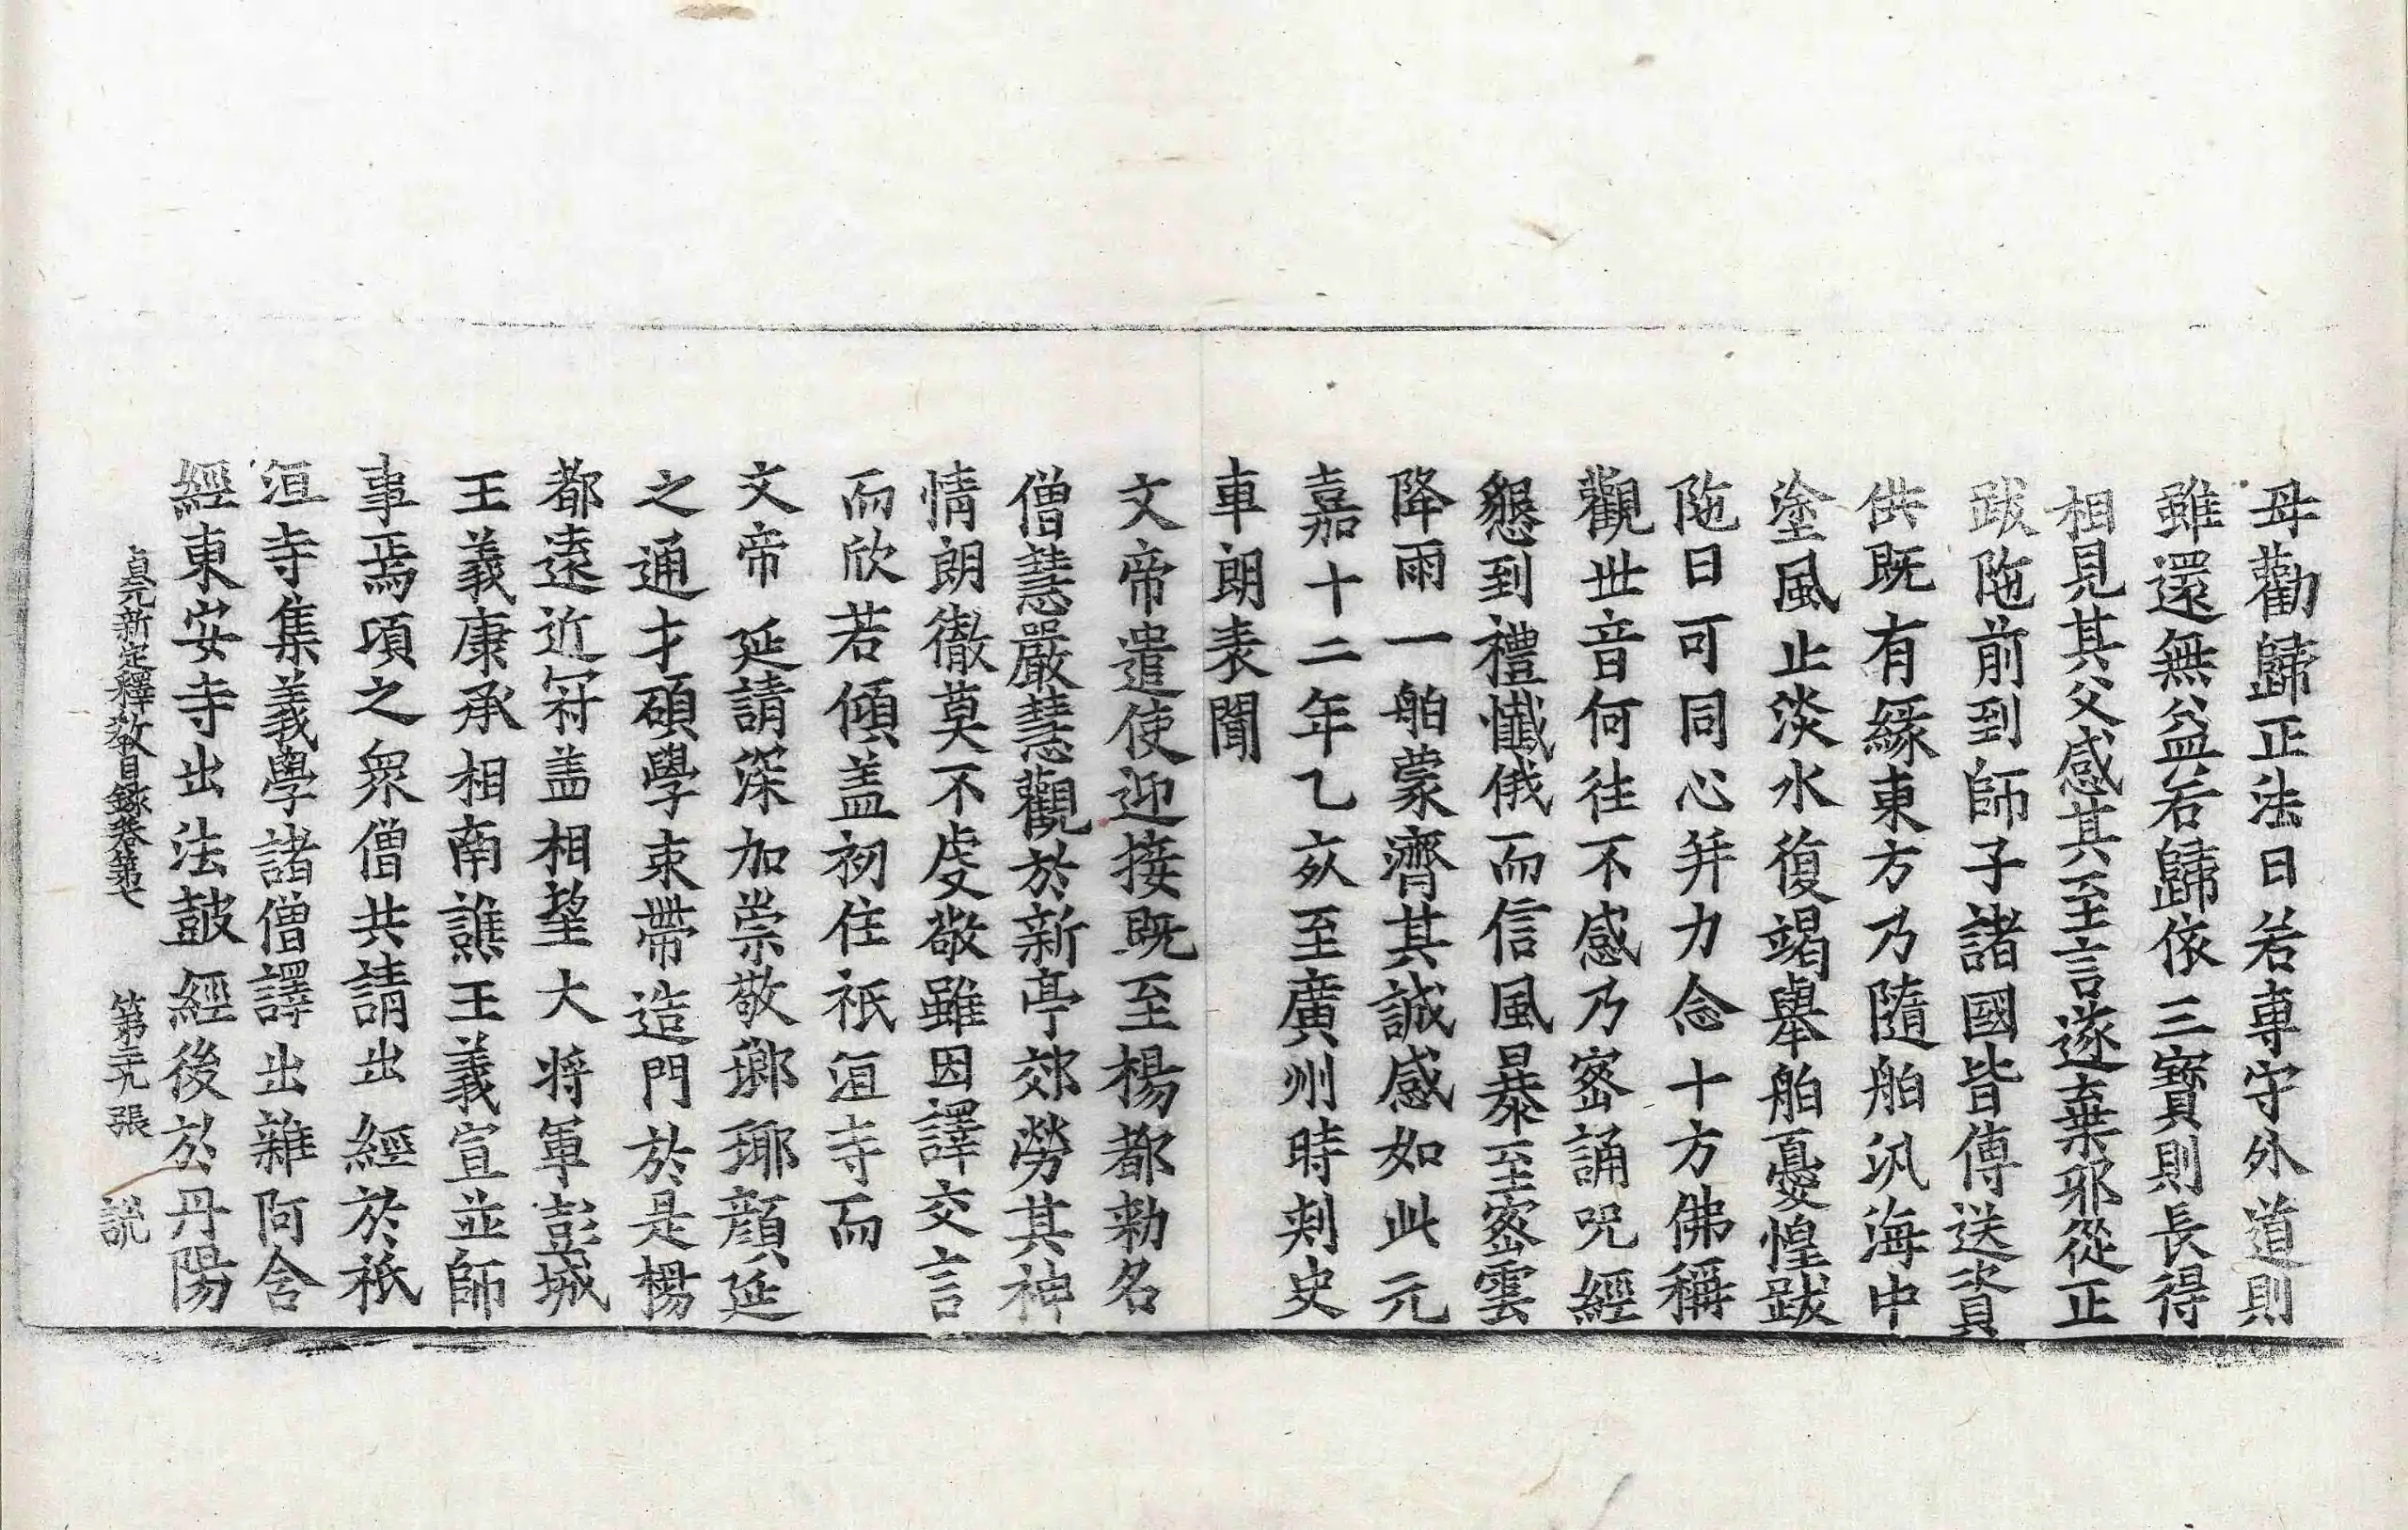 母勸歸正法曰若專守外道則
雖還無益若歸依三寶則長得
相見其父感其至言遂棄邪從正
跋陁前到師子諸國皆傳送資
供既有緣東方乃隨舶汎海中
塗風止淡水復竭舉舶憂惶跋
陁曰可同心并力念十方佛稱
觀世音何往不感乃密誦呪經
懇到禮懺俄而信風暴至密雲
降雨一舶蒙濟其誠感如此元
嘉十二年乙亥至廣州時刾史
車朗表聞
文帝遣使迎接既至楊都勑名
僧慧嚴慧觀於新亭郊勞其神
情朗徹莫不虔敬雖因譯交言
而欣若傾盖初住祇洹寺而
文帝延請深加崇敬瑯瑘顔延
之通才碩學束帶造門於是楊
都遠近冠盖相望大將軍彭城
王義康承相南譙王義宣並師
事焉頃之衆僧共請出經於祇
洹寺集義學諸僧譯出雜阿含
經東安寺出法鼓經後於丹陽
貞元新定釋教目錄卷第七 第二十九張 說